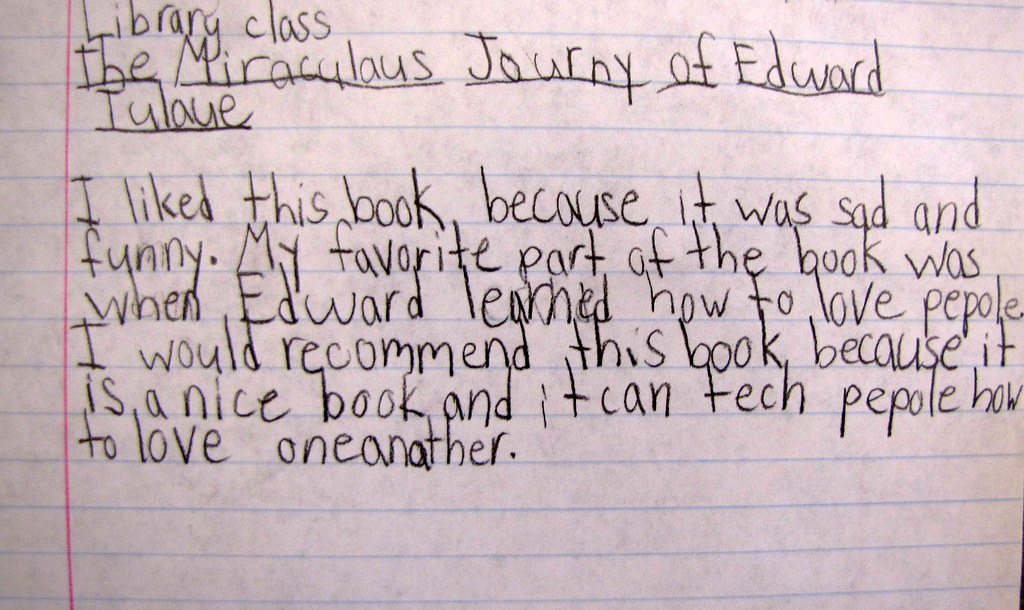 Library class
The Miraculaus Journy of Edward
Tulaue
I liked this book, because it was sad and
funny. My favorite part of the book was
when Edward learned how to love pepole.
I would recommend this book, because it
is a nice book and it can tech pepole how
to love oneanather.